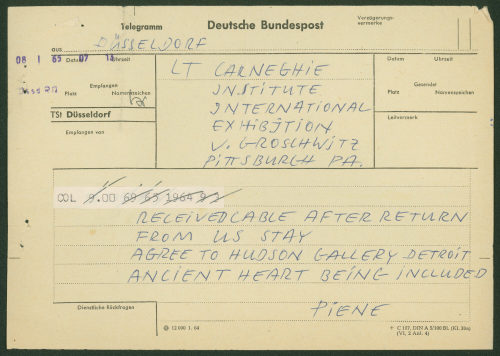 Telegramm
Deutsche Bundespost
Verzögerungs-
vermerke
aus DÜSSELDORF
Datum Uhrzeit
08 1 65 07 13
Empfangen
Platz Namenszeichen
TSt Düsseldorf
Empfangen von
LT CARNEGHIE
INSTITUTE
INTERNATIONAL
EXHIBITION
V. GROSCHWITZ
PITTSBURGH PA.
Datum Uhrzeit
Gesendet
Platz Namenszeichen
Leitvermerk
COL 9.00 68 65 1964 9 2
RECEIVEDCABLE AFTER RETURN
FROM US STAY
AGREE TO HUDSON GALLERY DETROIT
ANCIENT HEART BEING INCLUDED
PIENE
Dienstliche Rückfragen
12 000 1. 64
+ C 187, DIN A 5/100 Bl. (Kl. 30a)
(VI, 2 Anl. 4)